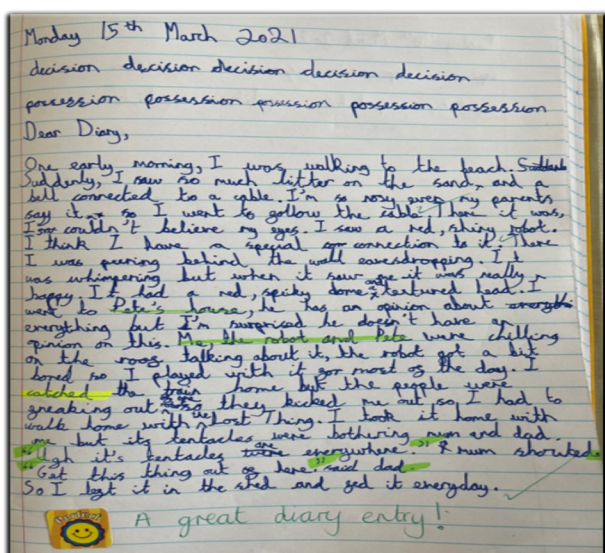 Monday 15th March 2021
decision decision decision decision decision
possession possession possession possession possession
Dear Diary,
One early morning, I was walking to the beach,
Suddenly, I saw so much litter on the sand, and a
bell connected to a cable. I'm so nosy even my parents
say it, so I went to follow the cable. There it was,
I couldn't believe my eyes. I saw a red, shiny robot.
I think I have a special connection to it. There
I was peering behind the wall eavesdropping. It
was whimpering but when it saw me it was really
happy. It had a red, spiky and dome textured head. I
went to Pete's house, he has an opinion about
everything but I'm surprised he doesn't have an
opinion on this. Me, the robot and Pete were chilling
on the roof talking about it, the robot got a bit
bored so I played with it for most of the day. I
catched the home but the people were
freaking out they kicked me out, so I had to
walk home with the Lost Thing. I took it home with
me but its tentacles were bothering mum and dad.
"Ugh it's tentacles are everywhere." mum shouted.
"Get this thing out of here." said dad.
So I left it in the shed and fed it everyday.
Perfect
A great diary entry!